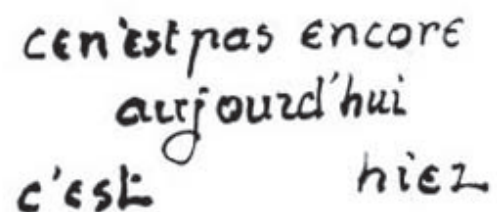 ce n'est pas encore
aujourd'hui
c'est hier